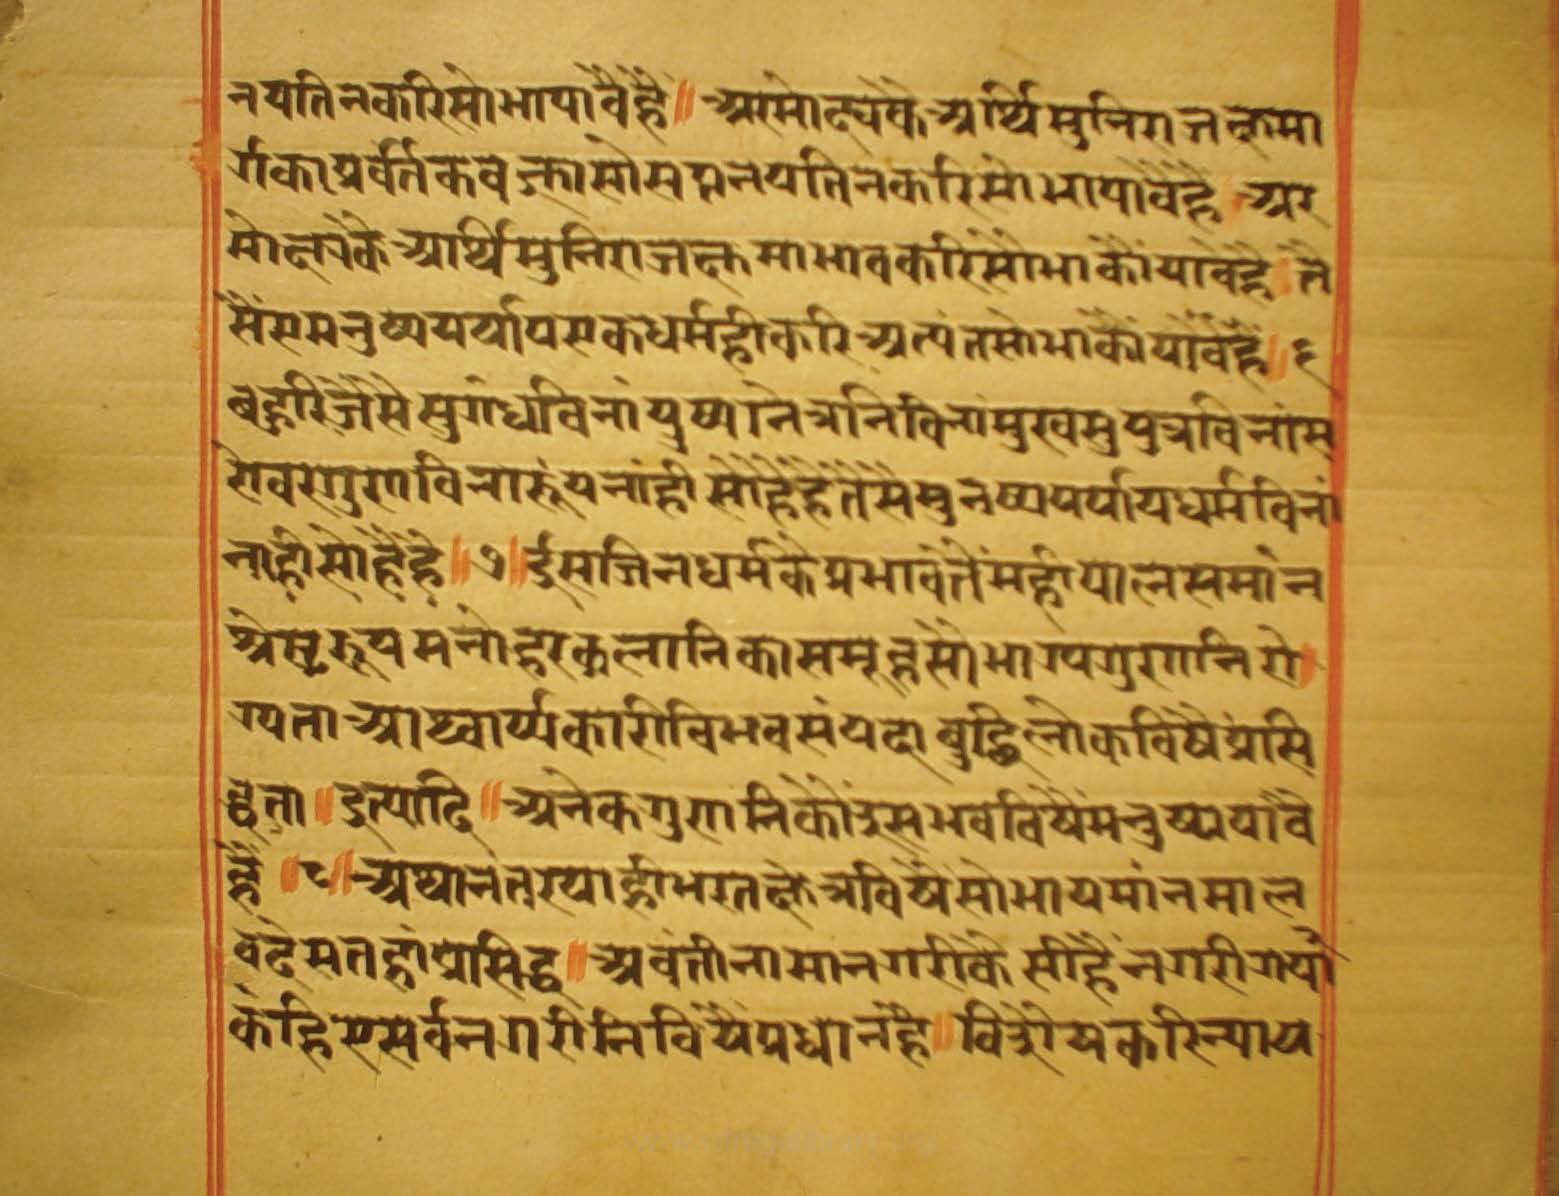 नयतिनकरिसोभापावैहै॥ अरमोक्ष्यकेअर्थिमुनिराजक्षमा
र्गकाप्रवर्तकवक्तासोसप्तनयतिनकरिसोभापावैहै॥अर
मोक्ष्यकैआर्थिमुनिराजक्षमाभावकरिसोभाकौंपावैहै॥तै
सैंसमनुष्यपर्यायएकधर्महीकरिअत्यंतसोभाकौंपावैहै॥६
बहुरिजैसेसुगंधविनांपुष्पनेत्रनिविनांमुखसुपुत्रविनांस
रोवरगुणविनारूंपनांहीसोहैहैतैसैमुनष्यपर्यायधर्मविनां
नाहीसोहैहै॥७॥ईसजिनधर्मकेप्रभावतैंमहीपालसमांन
श्रेष्टरूपमनोहरकलानिकासमूहसोभाग्यगुणनिरो
ग्यताआश्चार्य्यकारीविभवसंपदाबुद्धिलोकविषैप्रसि
द्धता॥इत्यादि॥अनेकगुणनिकौंइसभवविषैंमनुष्यपावै
है॥८॥अथानंतरयाहीभरतक्षेत्रविषैंसोभायमांनमाल
वदेसतहांप्रसिद्ध॥अवंतीनामानगरीकैसीहैंनगरीगयो
कंहिएसर्वनगरीनिविषैप्रधानहै॥विशेषकरिन्याय